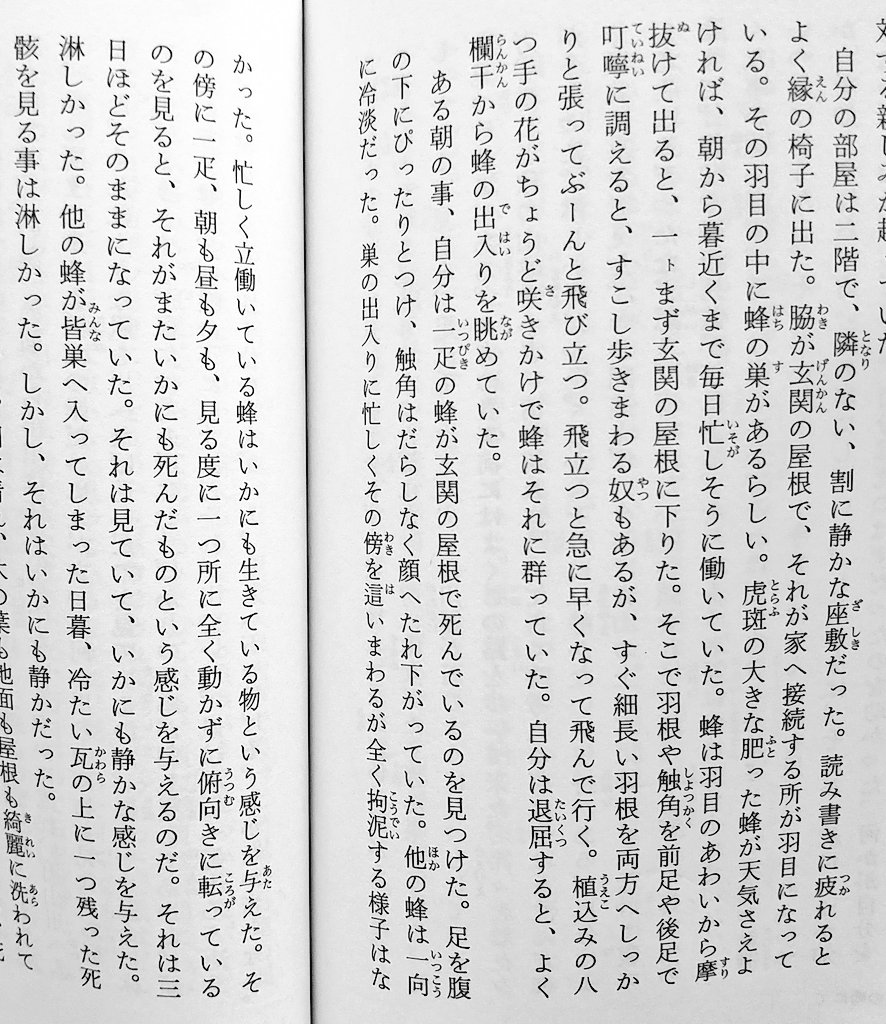 自分の部屋は二階で、隣のない、割に静かな座敷だった。読み書きに疲れると
よく縁の椅子に出た。脇が玄関の屋根で、それが家へ接続する所が羽目になって
いる。その羽目の中に蜂の巣があるらしい。虎斑の大きな肥った蜂が天気さえよ
ければ、朝から暮近くまで毎日忙しそうに働いていた。蜂は羽目のあわいから摩
抜けて出ると、一ㇳまず玄関の屋根に下りた。そこで羽根や触角を前足や後足で
叮嚀に調えると、すこし歩きまわる奴もあるが、すぐ細長い羽根を両方へしっか
りと張ってぶーんと飛び立つ。飛立つと急に早くなって飛んで行く。植込みの八
つ手の花がちょうど咲きかけで蜂はそれに群っていた。自分は退屈すると、よく
欄干から蜂の出入りを眺めていた。
ある朝の事、自分は一疋の蜂が玄関の屋根で死んでいるのを見つけた。足を腹
の下にぴったりとつけ、触角はだらしなく顔へたれ下がっていた。他の蜂は一向
に冷淡だった。巣の出入りに忙しくその傍を這いまわるが全く拘泥する様子はな
かった。忙しく立働いている蜂はいかにも生きている物という感じを与えた。そ
の傍に一疋、朝も昼も夕も、見る度に一つ所に全く動かずに俯向きに転っている
のを見ると、それがまたいかにも死んだものという感じを与えるのだ。それは三
日ほどそのままになっていた。それは見ていて、いかにも静かな感じを与えた。
淋しかった。他の蜂が皆巣へ入ってしまった日暮、冷たい瓦の上に一つ残った死
骸を見る事は淋しかった。しかし、それはいかにも静かだった。
葉も地面も屋根も綺麗に洗われて